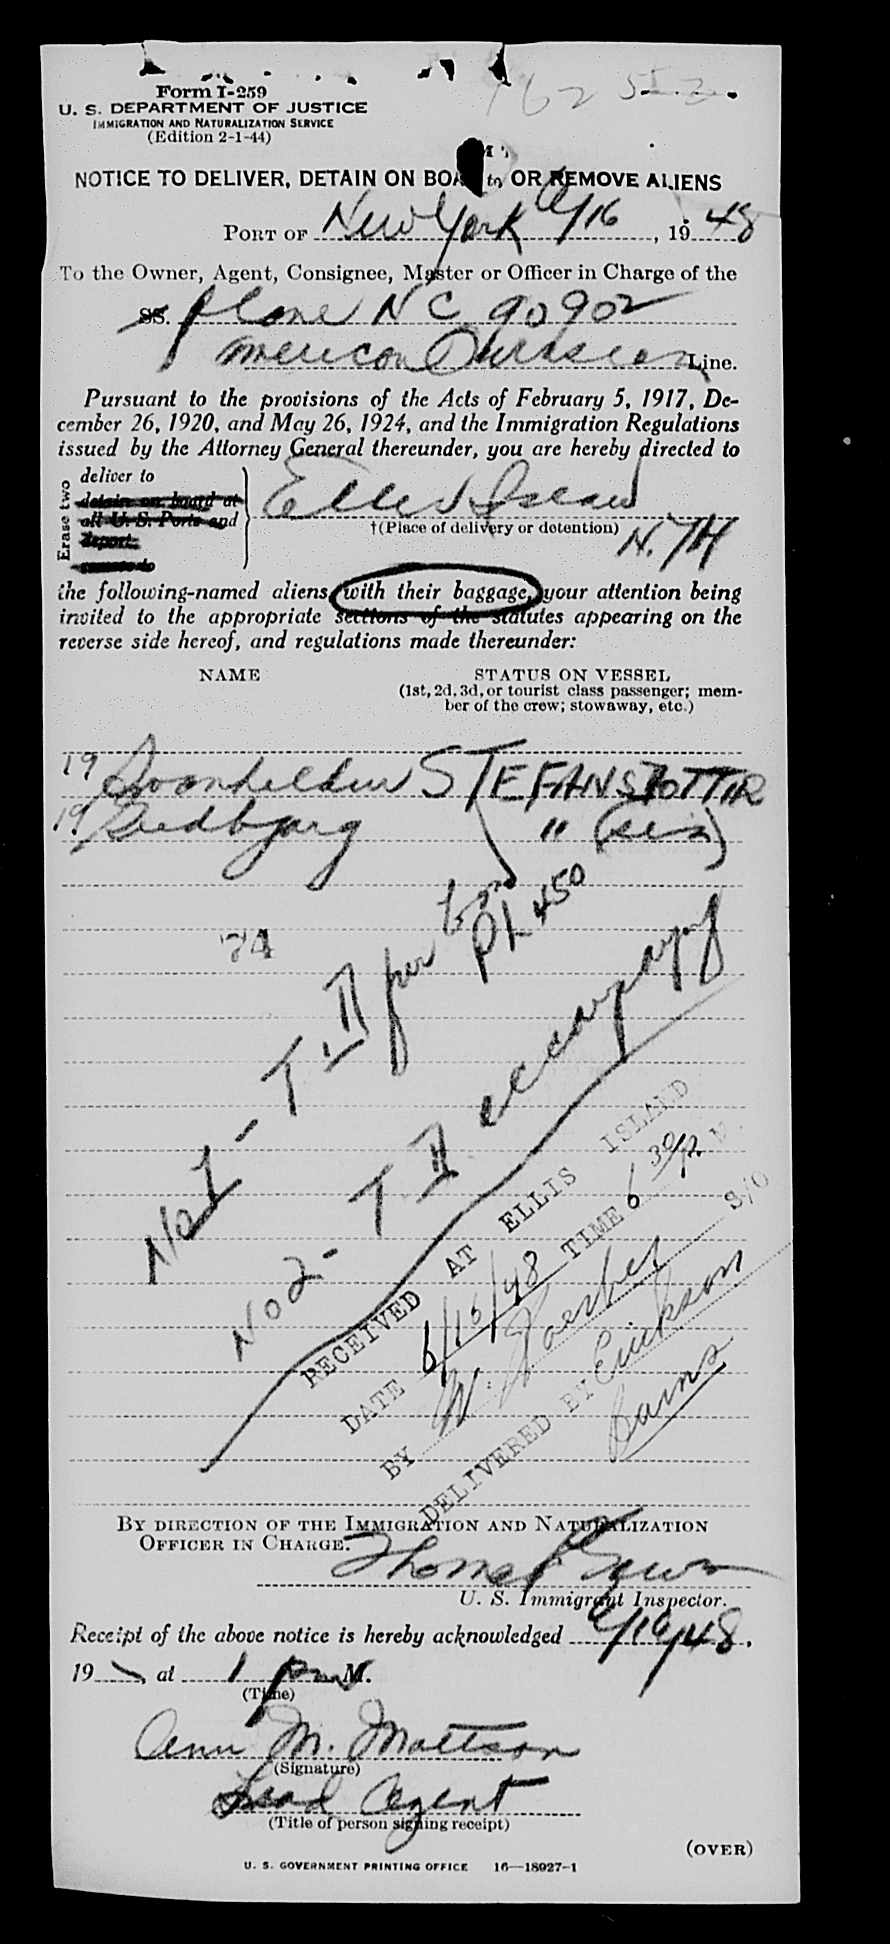 Form I-259
U. S. DEPARTMENT OF JUSTICE
IMMIGRATION AND NATURALIZATION SERVICE
(Edition 2-1-44)
NOTICE TO DELIVER, DETAIN ON BOARD OR REMOVE ALIENS
PORT OF New York 6/16, 1948
To the Owner, Agent, Consignee, Master or Officer in Charge of the
SS. plane NC 90902
American Overseas Line.
Pursuant to the provisions of the Acts of February 5, 1917, De-
cember 26, 1920, and May 26, 1924, and the Immigration Regulations
issued by the Attorney General thereunder, you are hereby directed to
Erase two
deliver to
detain on board at
all U. S. Ports and
deport
remove to
Ellis Island
†(Place of delivery or detention)
the following-named aliens with their baggage, your attention being
invited to the appropriate sections of the statutes appearing on the
reverse side hereof, and regulations made thereunder:
NAME STATUS ON VESSEL
(1st, 2d, 3d, or tourist class passenger; mem-
ber of the crew; stowaway, etc.)
19 Svanhildur STEFANSDOTTIR
19 Gudbjorg " (sis)
74
No 1 - T. II per
No 2 - T II accompanying
RECEIVED AT ELLIS ISLAND
DATE 6/16/48 TIME 6 30 P. M.
BY W. S/O
DELIVERED BY Erickson
Barns
BY DIRECTION OF THE IMMIGRATION AND NATURALIZATION
OFFICER IN CHARGE.
Thomas
U. S. Immigrant Inspector.
Receipt of the above notice is hereby acknowledged 6/16/48.
19 , at 1 pm M.
(Time)
Ann M. Mattson
(Signature)
Lead Agent
(Title of person signing receipt)
(OVER)
U. S. GOVERNMENT PRINTING OFFICE 16—18027-1